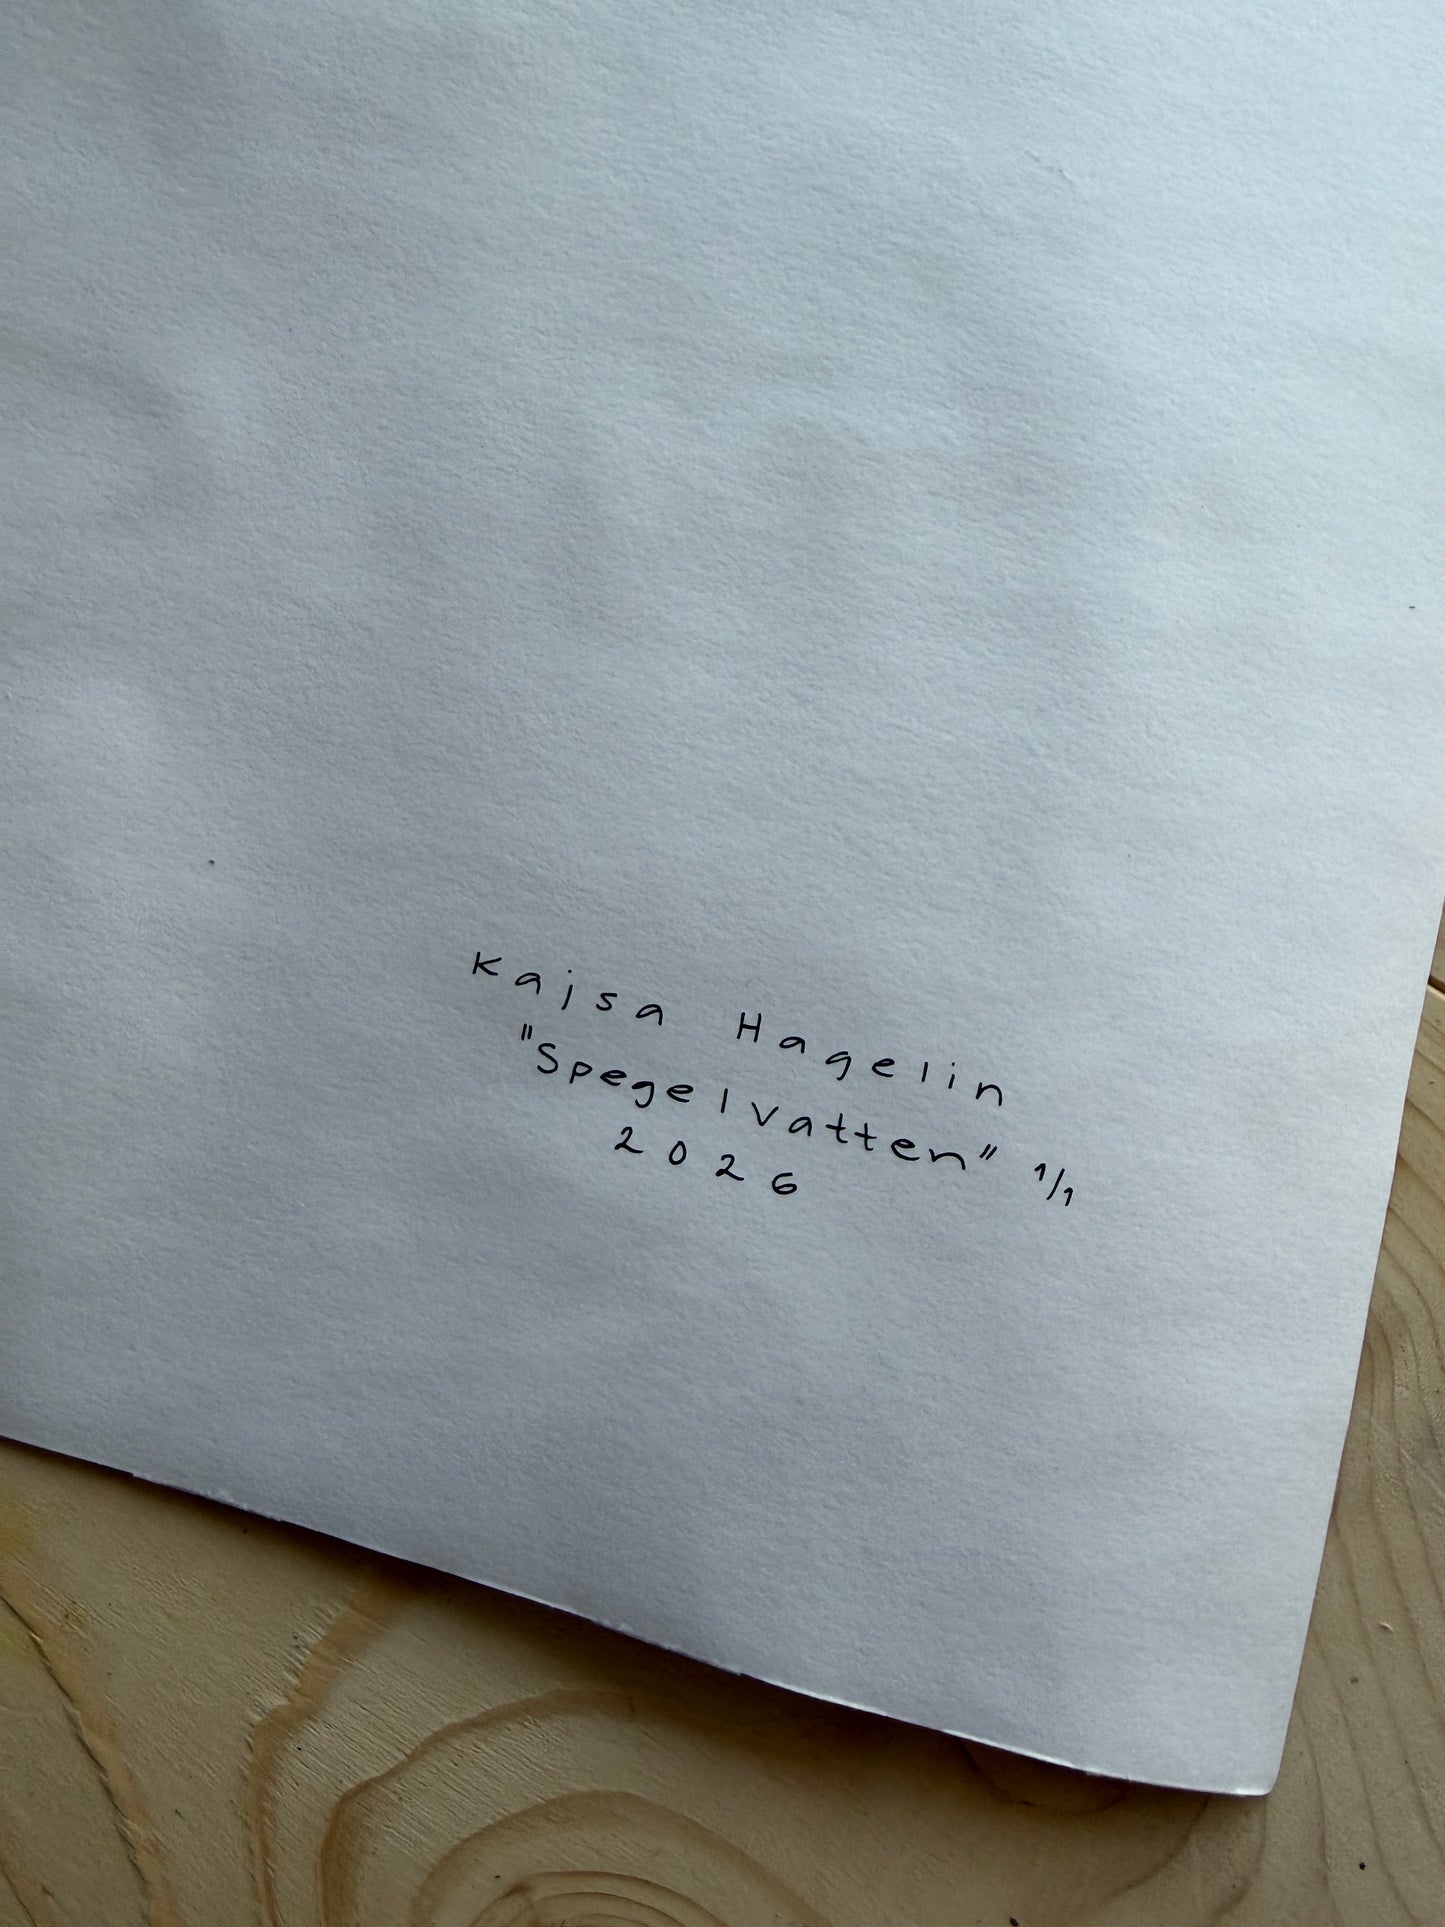 Kajsa Hagelin
"Spegelvatten" 1/1
2026